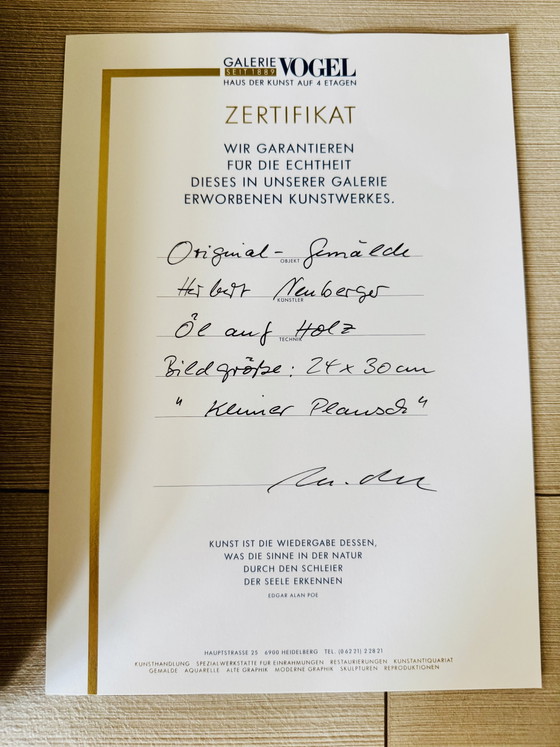 GALERIE VOGEL
SEIT 1889
HAUS DER KUNST AUF 4 ETAGEN
ZERTIFIKAT
WIR GARANTIEREN
FÜR DIE ECHTHEIT
DIESES IN UNSERER GALERIE
ERWORBENEN KUNSTWERKES.
Original - Gemälde
OBJEKT
Herbert Neuberger
KÜNSTLER
Öl auf Holz
TECHNIK
Bildgröße: 24 x 30 cm
"Kleiner Plausch"
KUNST IST DIE WIEDERGABE DESSEN,
WAS DIE SINNE IN DER NATUR
DURCH DEN SCHLEIER
DER SEELE ERKENNEN
EDGAR ALAN POE
HAUPTSTRASSE 25 6900 HEIDELBERG TEL. (06221) 22821
KUNSTHANDLUNG SPEZIALWERKSTATTE FÜR EINRAHMUNGEN RESTAURIERUNGEN KUNSTANTIQUARIAT
GEMALDE AQUARELLE ALTE GRAPHIK MODERNE GRAPHIK SKULPTUREN REPRODUKTIONEN